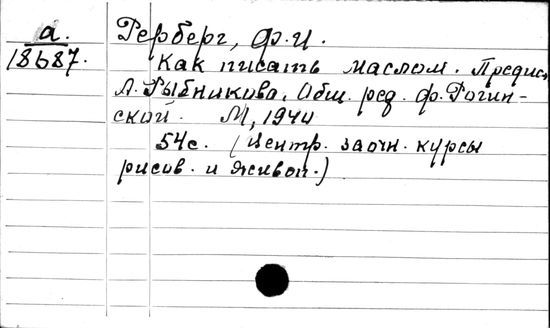 а.
18687.
Рерберг, Ф.И.
Как писать маслом. Предисл.
А. Рыбникова. Общ. ред. Ф. Рогин-
ской. М, 1940
54с. (Центр. заочн. курсы
рисов. и живоп.)